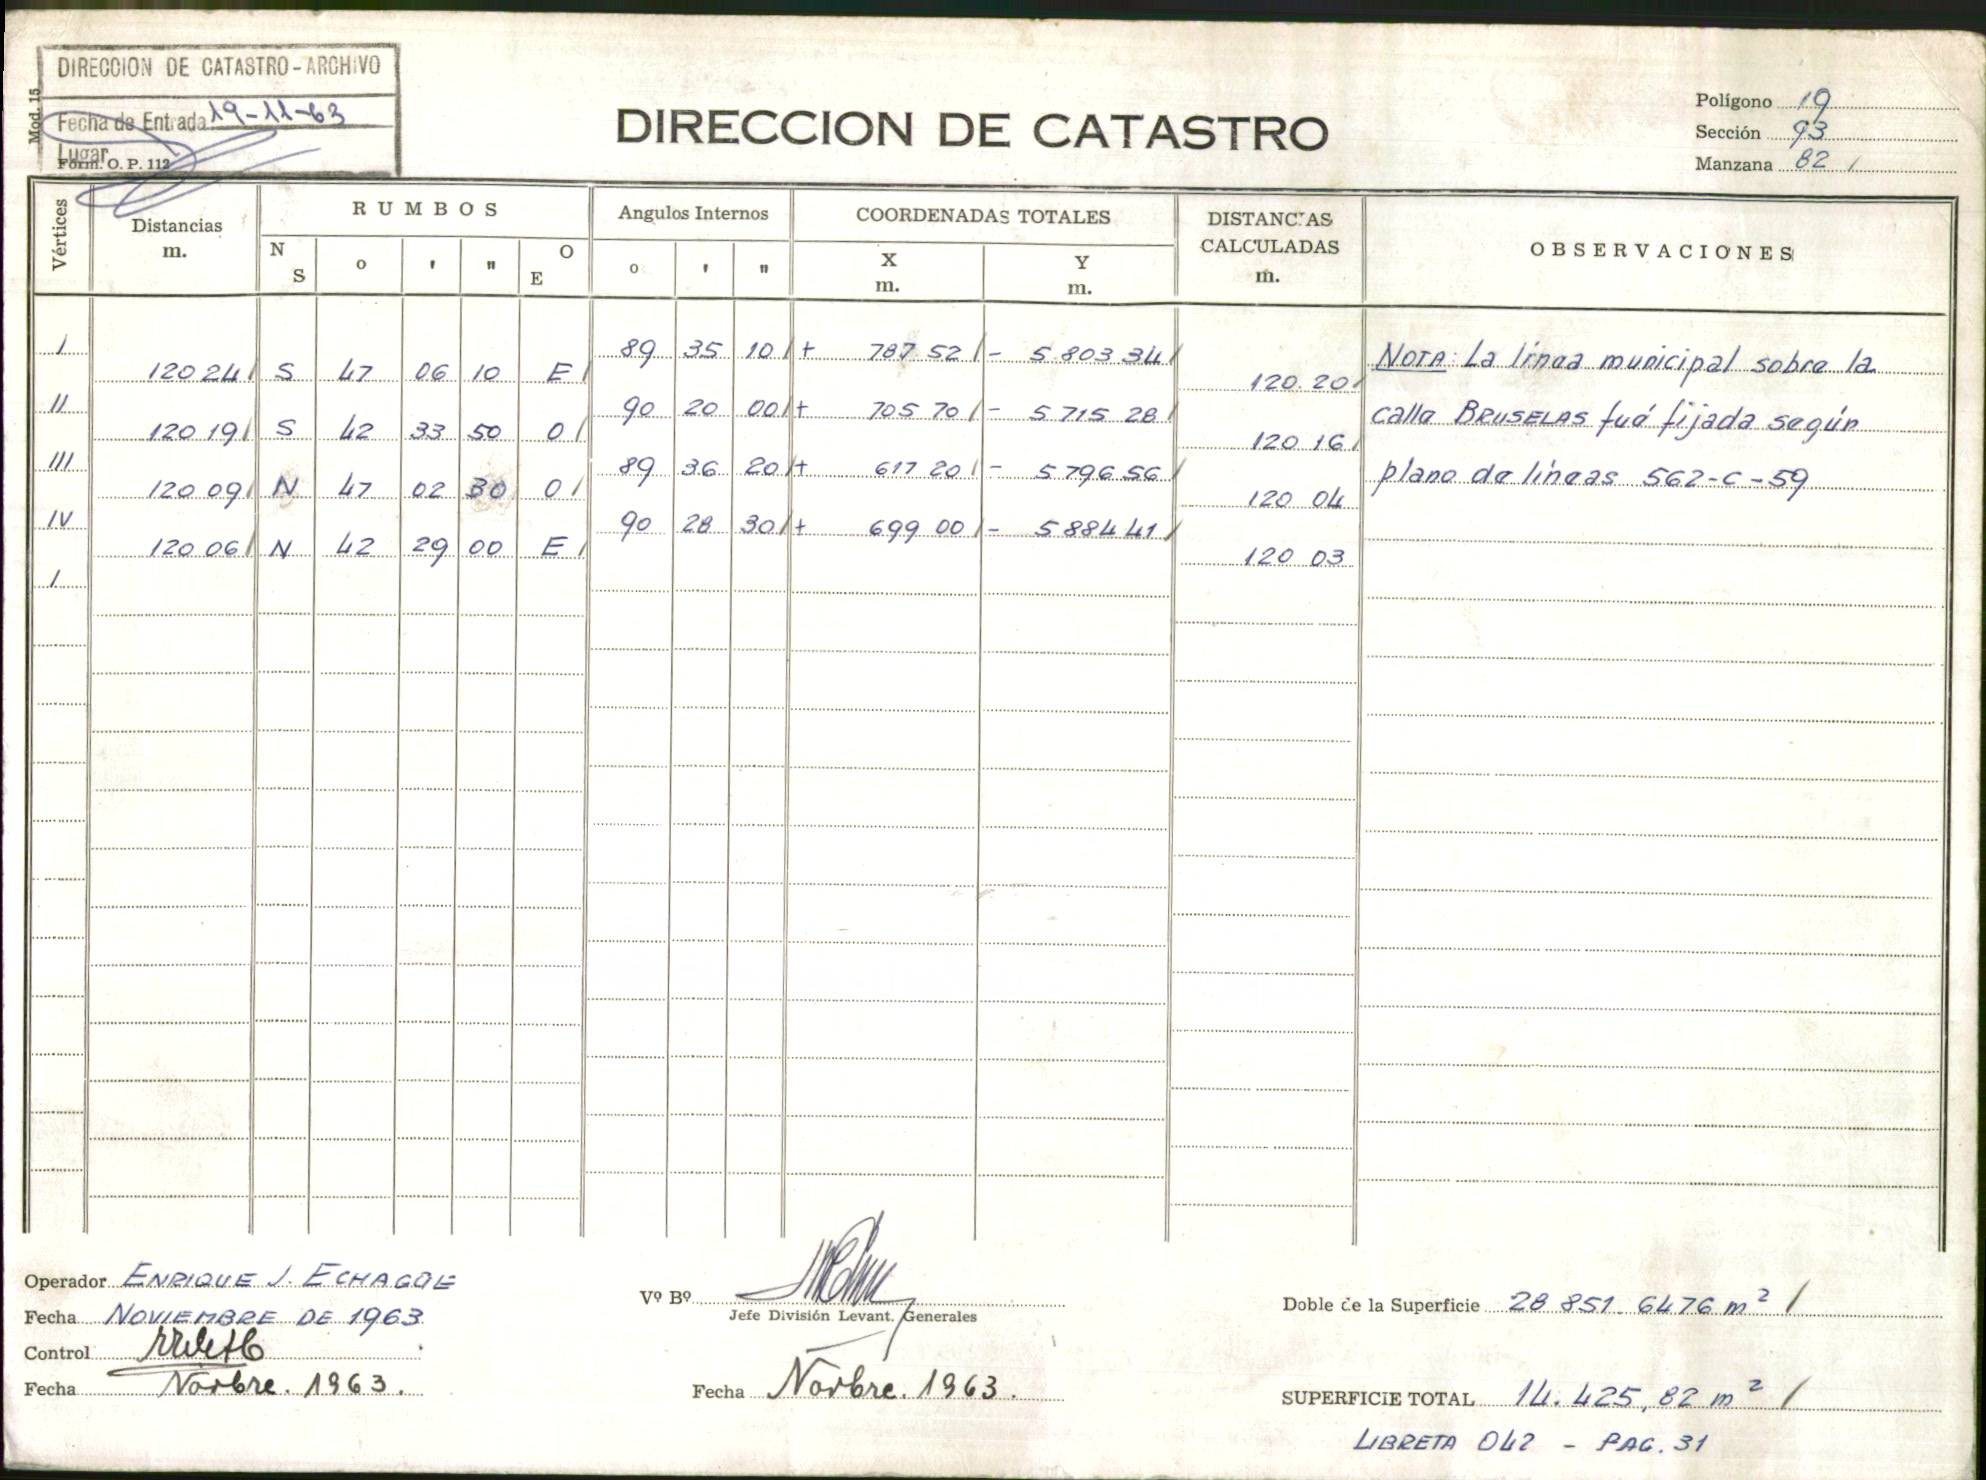 DIRECCION DE CATASTRO - ARCHIVO
Fecha de Entrada 19-11-63
Lugar
Form. O. P. 112
Mod. 15
DIRECCION DE CATASTRO
Polígono 19
Sección 93
Manzana 82 /
Vértices
Distancias m.
RUMBOS
N S o ' " O E
Angulos Internos
o ' "
COORDENADAS TOTALES
X m. Y m.
DISTANCIAS CALCULADAS m.
OBSERVACIONES
I 89 35 10 / + 787 52 / - 5 803 34 /
120 24 / S 47 06 10 E / 120 20 /
II 90 20 00 / + 705 70 / - 5 715 28 /
120 19 / S 42 33 50 O / 120 16 /
III 89 36 20 / + 617 20 / - 5 796 56 /
120 09 / N 47 02 30 O / 120 04
IV 90 28 30 / + 699 00 / - 5 884 41 /
120 06 / N 42 29 00 E / 120 03
I
NOTA: La línea municipal sobre la
calle BRUSELAS fué fijada según
plano de líneas 562-C-59
Operador ENRIQUE J. ECHAGÜE
Fecha NOVIEMBRE DE 1963
Control
Fecha Novbre. 1963.
Vº Bº
Jefe División Levant. Generales
Fecha Novbre. 1963.
Doble de la Superficie 28 851. 6476 m² /
SUPERFICIE TOTAL 14. 425, 82 m² /
LIBRETA 042 - PAG. 31